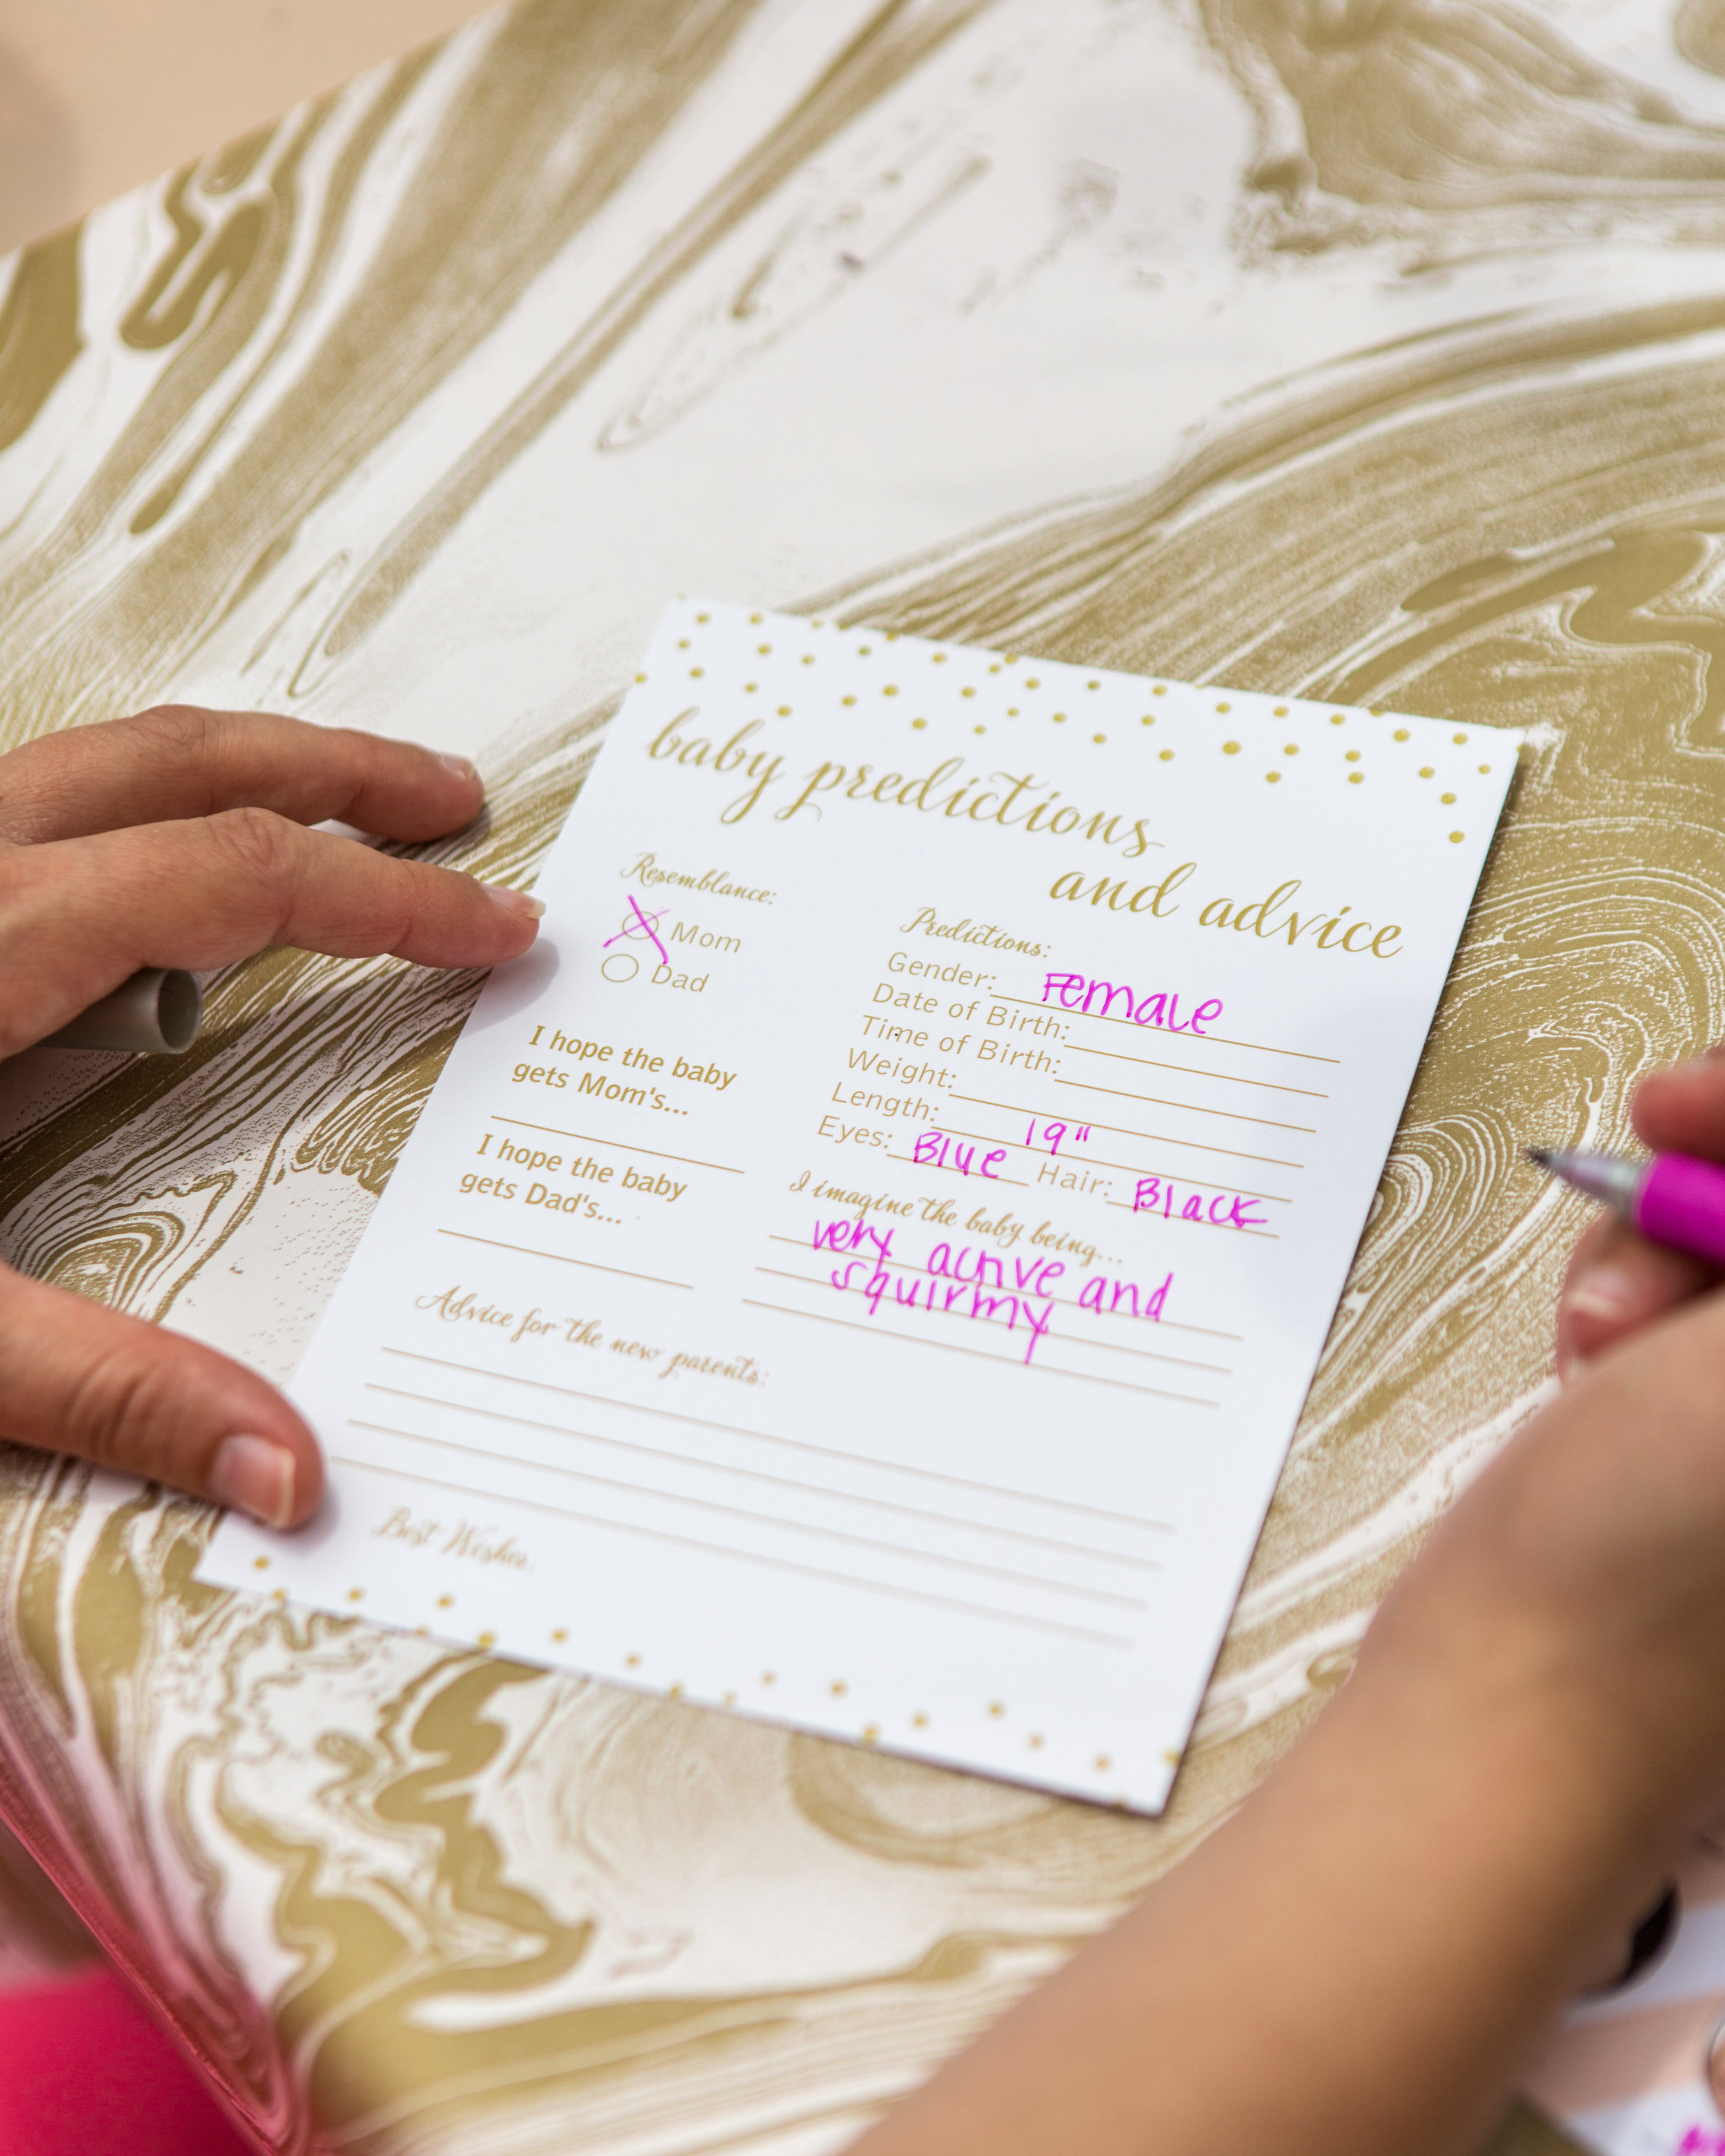 baby predictions
and advice
Resemblance:
Mom
Dad
I hope the baby
gets Mom's...
I hope the baby
gets Dad's...
Predictions:
Gender: Female
Date of Birth:
Time of Birth:
Weight:
Length: 19"
Eyes: Blue Hair: Black
I imagine the baby being...
very active and
squirmy
Advice for the new parents:
Best Wishes,